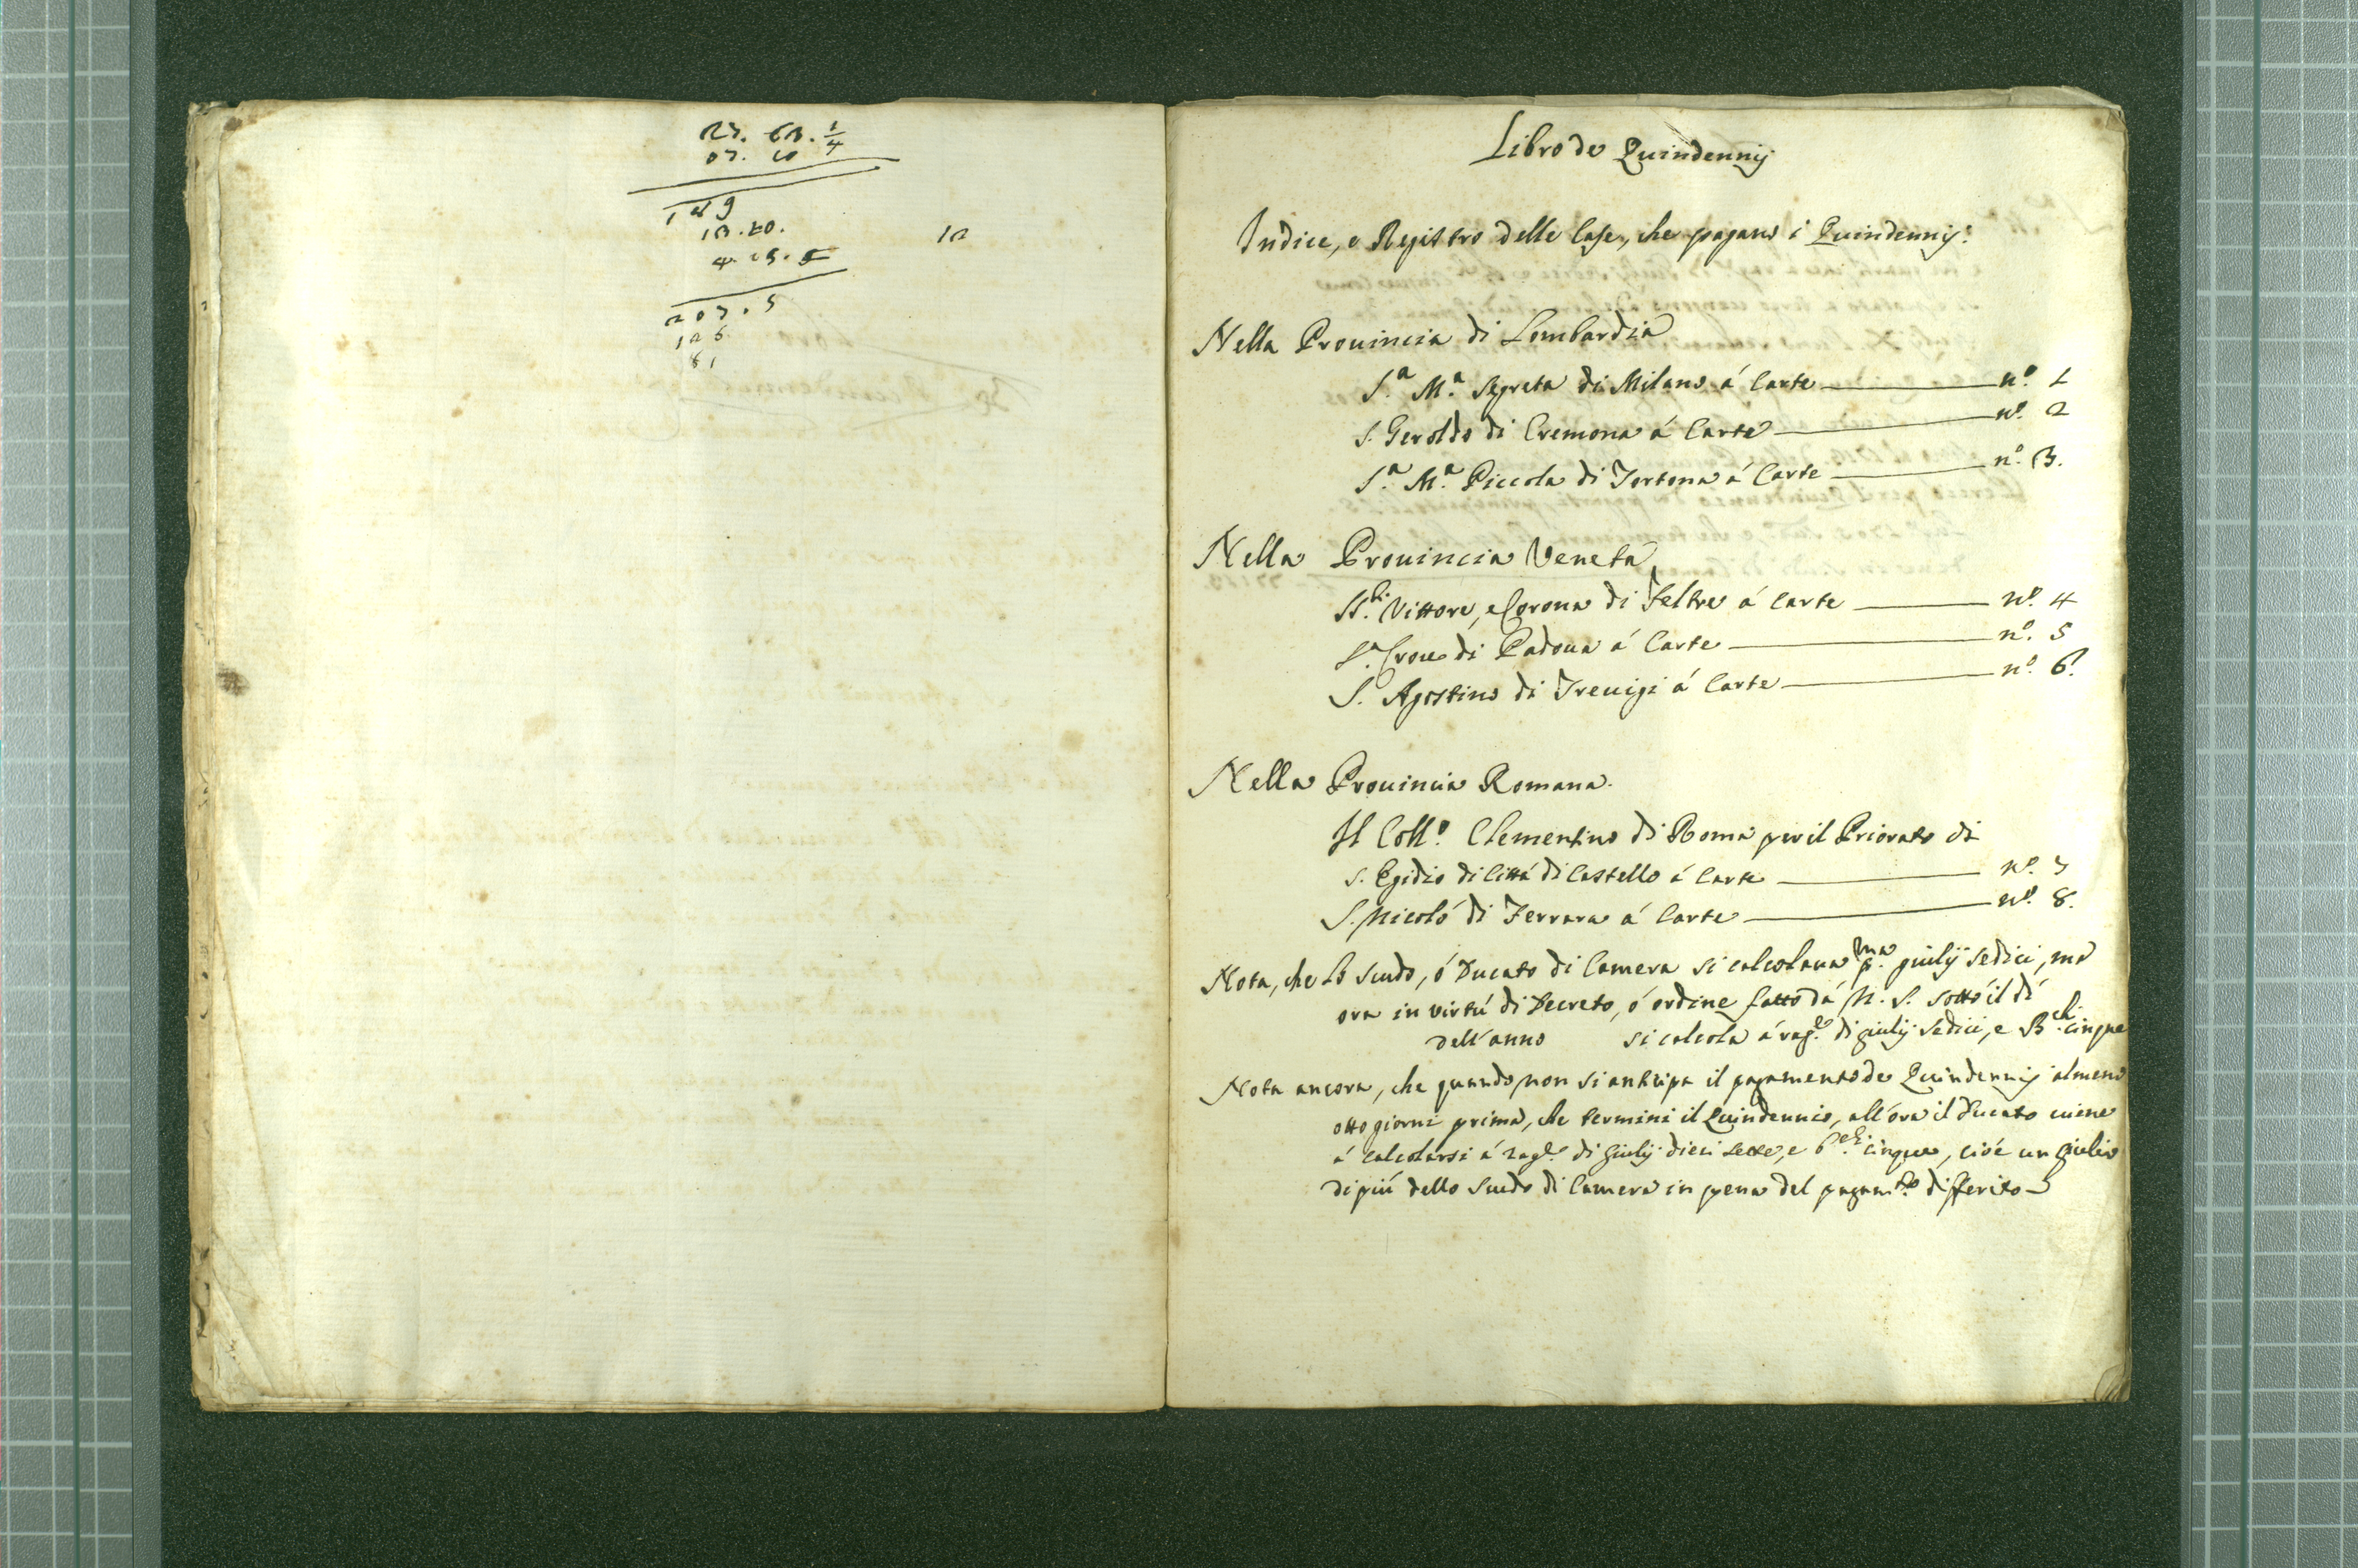 27. 63. 1/4
07. 60
149
13. 20.
12
4. 15. 5
207. 5
126.
81
Libro de Quindennij
Indice, e Registro delle Case, che pagano i Quindennij:
Nella Prouincia di Lombardia
S.a M.a Segreta di Milano á Carte n.o 1
S. Geroldo di Cremona á Carte n.o 2
S.a M.a Piccola di Tortona á Carte n.o 3.
Nella Prouincia Veneta
SS.ti Vittore, e Corona di Feltre á Carte n.o 4
S.a Croce di Padoua á Carte n.o 5
S. Agostino di Treuigi á Carte n.o 6.
Nella Prouincia Romana.
Il Coll.o Clementino di Roma per il Priorato di
S. Egidio di Cittá di Castello á Carte n.o 7
S. Nicoló di Ferrara á Carte n.o 8.
Nota, che lo scudo, ó Ducato di Camera si calcolaua p.ma giulij sedici, ma
ora in virtú di Decreto, ó ordine fatto dá N. S. sotto il dí
dell'anno si calcola á rag.e di giulij sedici, e B.chi cinque
Nota ancora, che quando non si anticipa il pagamento de Quindennij almeno
otto giorni prima, che termini il Quindennio, all'ora il Ducato uiene
á calcolarsi á rag.e di giulij dieci sette, e b.chi cinque, cioé un giulio
di piú dello scudo di Camera in pena del pagam.to differito